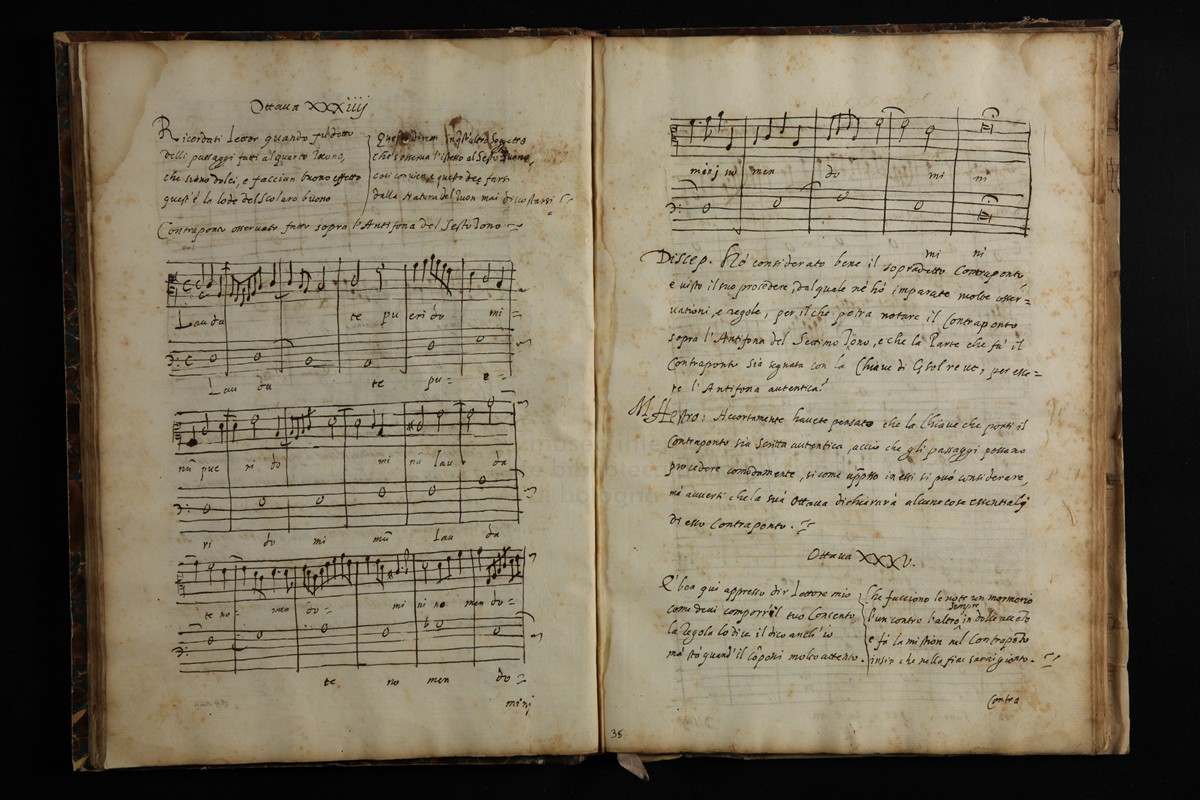 Ottava XXXiiij
Ricordati Lettor quando
delli passaggi fatti al quarto Tuono,
che siano dolci, e faccian buono effetto
quest'è la lode del scolaro buono
che s'osserva l'istesso al Sesto Tuono,
così conviene e questo dee farsi
dalla Natura del Tuon mai discostarsi
Contraponto osservato fatto sopra l'Antifona del Sesto Tono
Lau da te pu eri do mi =
Lau da te pu = e =
nū pue ri do mi nū lau da
ri do mi nū Lau da
te no = men do = mi ni no men do =
te no men do =
mi nj
minj no men do mi ni
mi ni
Discep. Hò considerato bene il sopradetto Contraponto
e visto il suo procedere, dal quale nè hò imparate molte osser=
vationi, e regole, per il che potrà notare il Contraponto
sopra l'Antifona del Settimo Tono, e che la Parte che fà il
Contraponto sia segnata con la Chiave di G sol re ut, per esse=
re l'Antifona autentica!
Maestro: Accortamente havete pensato che la Chiave che porti il
Contraponto sia scritta autentica, acciò che gli passaggi possano
procedere comodamente, si come in essi si può considerare,
mà avverti che la sua Ottava dichiararà alcune cose essentiali
di esso Contraponto.
Ottava XXXV.
E' ben qui appresso dir Lettore mio
come devi comporr' il tuo Concento
la regola lo dice il dico anch'io
mà stà quand' il cōponi molto attento.
Che facciono le note un mormorio
l'un contro l'altro sempre in dolce
e fà la mistion nel Contraponto
insin che nella fine sarai gionto.
Contra
38